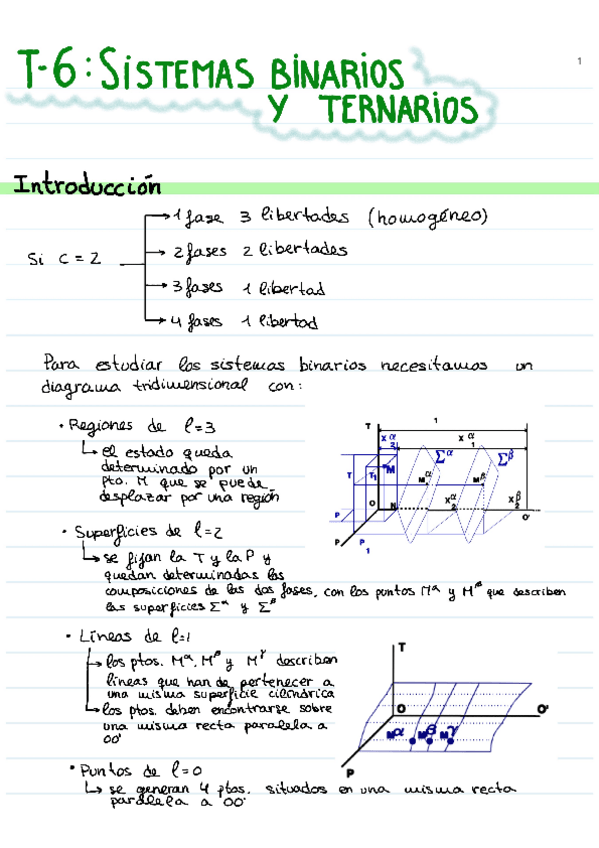 T-6: SISTEMAS BINARIOS
Y TERNARIOS
1
Introducción
Si c = 2
1 fase 3 libertades (homogéneo)
2 fases 2 libertades
3 fases 1 libertad
4 fases 1 libertad
Para estudiar los sistemas binarios necesitamos un
diagrama tridimensional con:
· Regiones de l=3
el estado queda
determinado por un
pto. M que se puede
desplazar por una región
T 1
X α 2 X α 1 Σα Σβ
T T1 M Mα Mβ
O N X α 2 X β 2 O'
P
P P1
· Superficies de l=2
se fijan la T y la P y
quedan determinadas las
composiciones de las dos fases, con los puntos Mα y Mβ que describen
las superficies Σα y Σβ
· Líneas de l=1
los ptos. Mα, Mβ y Mγ describen
líneas que han de pertenecer a
una misma superficie cilíndrica
los ptos. deben encontrarse sobre
una misma recta paralela a
OO'
T
O O'
Mα Mβ Mγ
P
· Puntos de l=0
se generan 4 ptos. situados en una misma recta
paralela a OO'